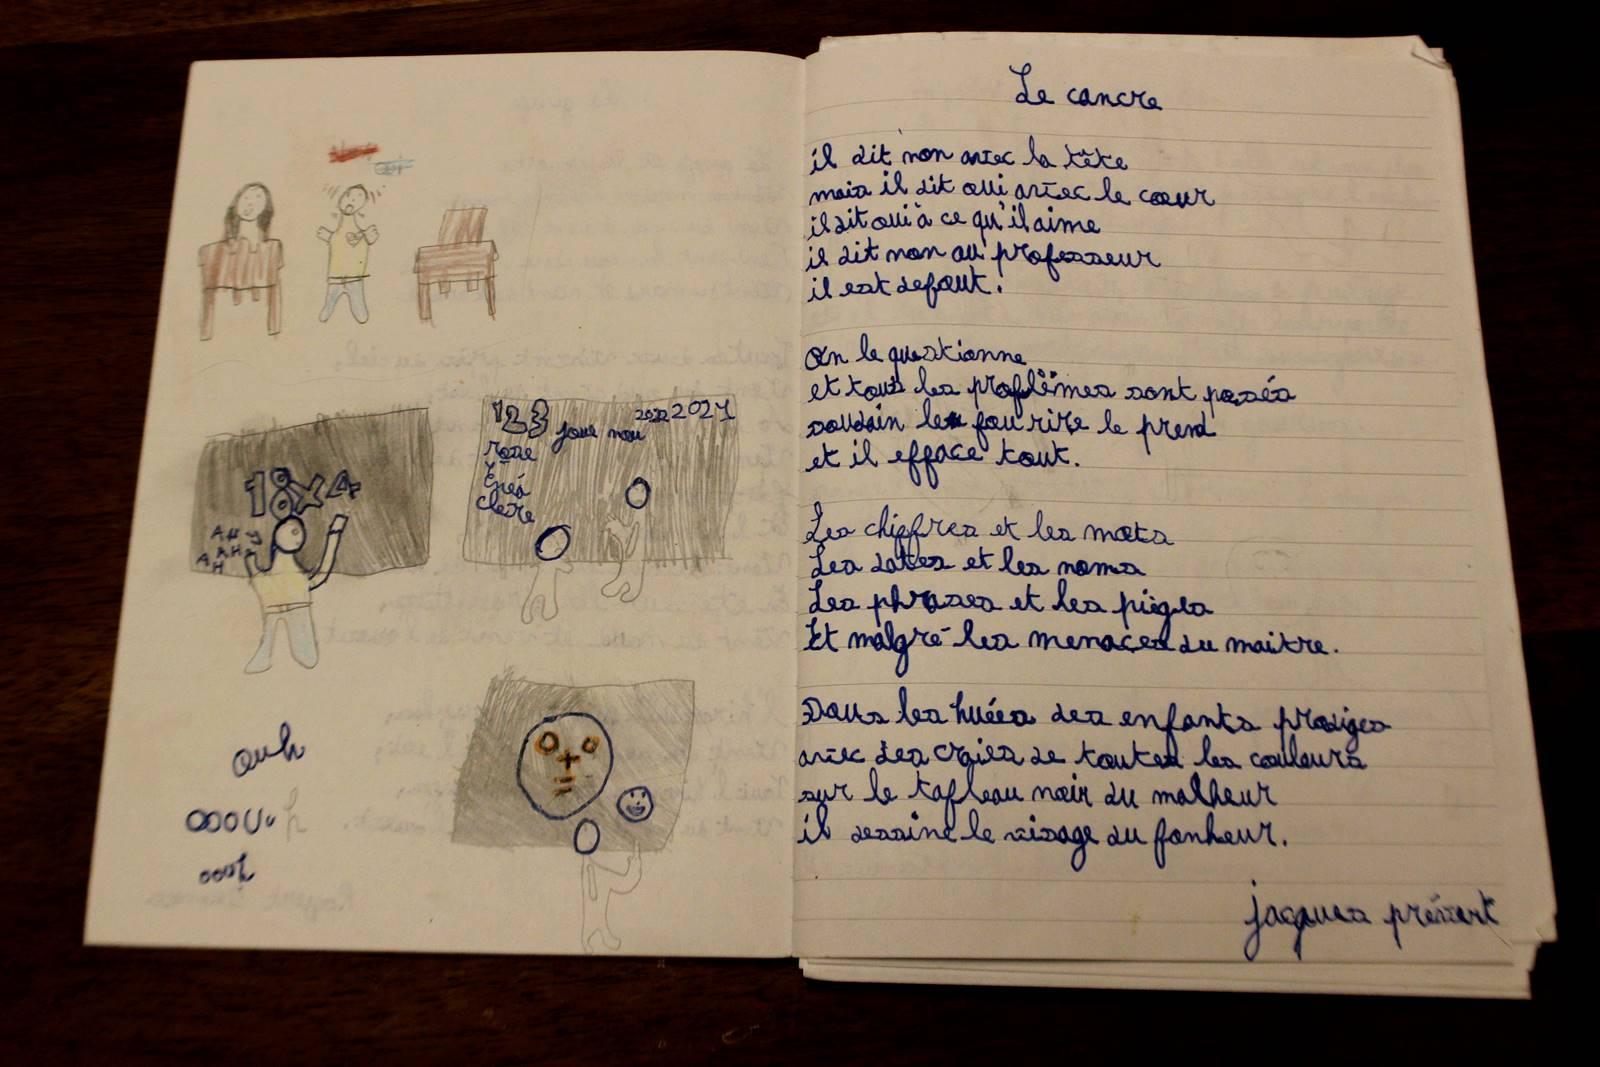 non
oui
18x4
AH
AH
AH
123 joue nou 2022 2021
rose
Inés
Claire
ouh
ooouuh
oouh
Le cancre
il dit non avec la tête
mais il dit oui avec le cœur
il dit oui à ce qu'il aime
il dit non au professeur
il est debout.
On le questionne
et tous les problèmes sont posés
soudain le fou rire le prend
et il efface tout.
Les chiffres et les mots
Les dates et les noms
Les phrases et les pièges
Et malgré les menaces du maitre.
Dans les huées des enfants prodiges
avec des craies de toutes les couleurs
sur le tableau noir du malheur
il dessine le visage du bonheur.
jacques prévert